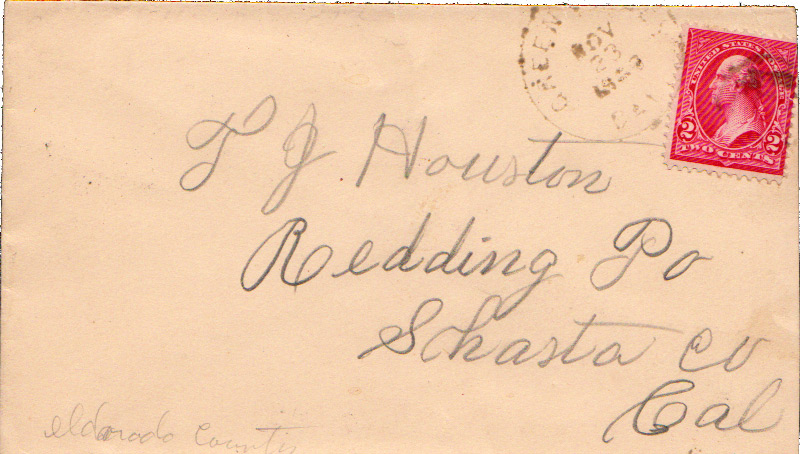 NOV
CAL
UNITED STATES POSTAGE
2 2
TWO CENTS
T J Houston
Redding Po
Shasta co
Cal
eldorado County